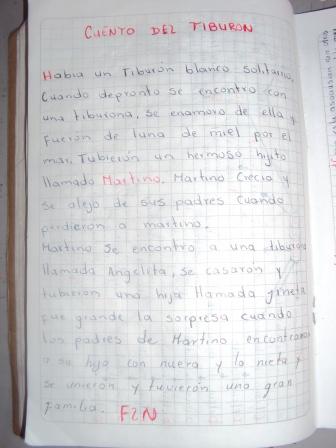 CUENTO DEL TIBURON
Habia un Tiburón blanco solitario,
Cuando depronto se encontro con
una tiburona, se enamoro de ella y
Fuerón de luna de miel por el
mar. Tubierón un hermoso hijito
llamado Martino. Martino Crecia y
se alejo de sus padres Cuando
perdieron a martino.
Martino se encontro a una tiburona
llamada Angelita, se casarón y
tubierón una hija llamada
fue grande la sorpresa cuando
los padres de Martino encontraron
a su hijo con nuera y la nieta y
se unierón y tuvierón una gran
familia. FIN